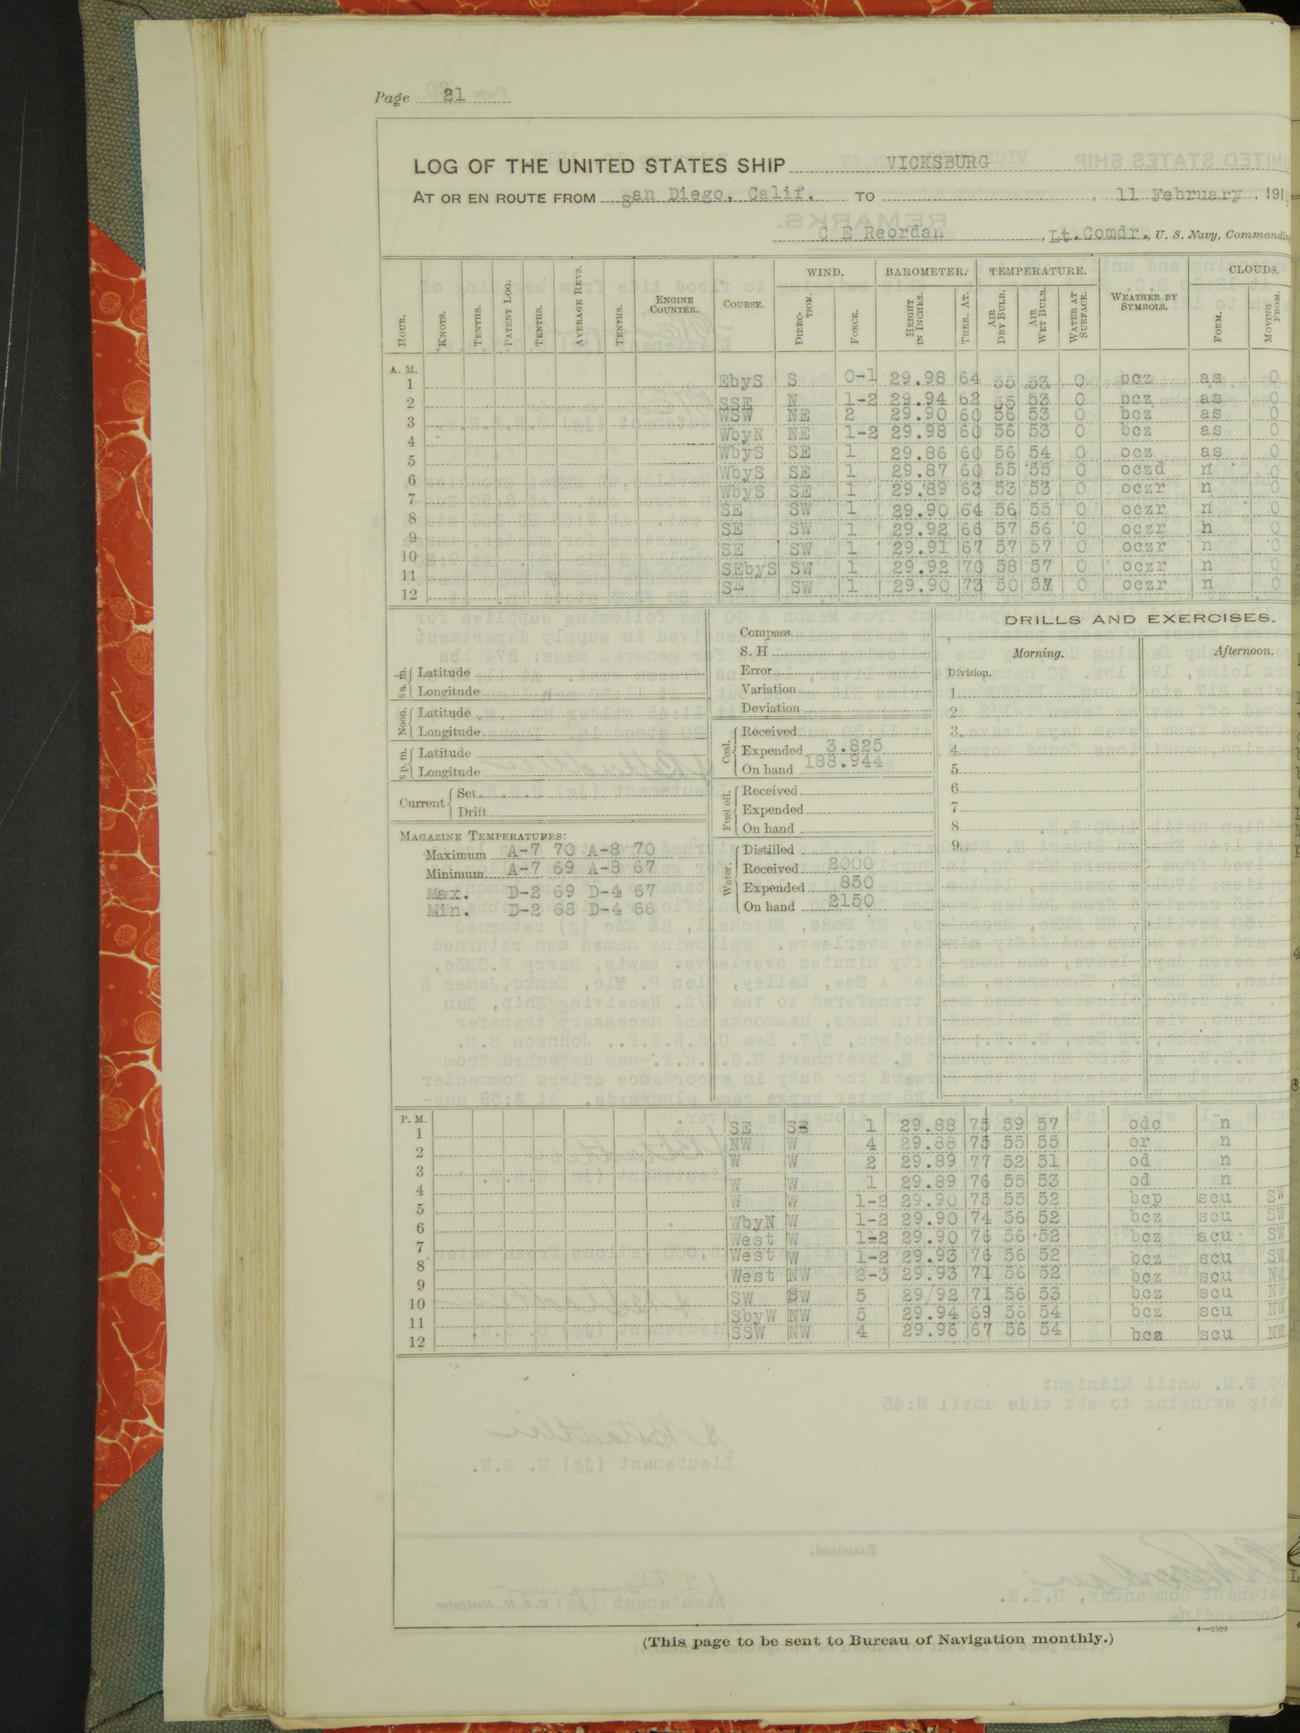 Page 21
LOG OF THE UNITED STATES SHIP VICKSBURG
AT OR EN ROUTE FROM San Diego, Calif. TO , 11 February , 191
C E Reordan , Lt.Comdr., U. S. Navy, Commandi
WIND. BAROMETER. TEMPERATURE. CLOUDS.
HOUR. KNOTS. TENTHS. PATENT LOG. TENTHS. AVERAGE REVS. TENTHS. ENGINE COUNTER. COURSE. DIREC-TION. FORCE. HEIGHT IN INCHES. THER. AT. AIR DRY BULB. AIR WET BULB. WATER AT SURFACE. WEATHER BY SYMBOLS. FORM. MOVING FROM.
A. M.
1 EbyS S 0-1 29.98 64 55 53 0 bcz as 0
2 SSE N 1-2 29.94 62 55 53 0 bcz as 0
3 WSW NE 2 29.90 60 56 53 0 bcz as 0
4 WbyN NE 1-2 29.98 60 56 53 0 bcz as 0
5 WbyS SE 1 29.86 60 56 54 0 ocz as 0
6 WbyS SE 1 29.87 60 55 55 0 oczd n 0
7 WbyS SE 1 29.89 63 53 53 0 oczr n 0
8 SE SW 1 29.90 64 56 55 0 oczr n 0
9 SE SW 1 29.92 66 57 56 0 oczr n 0
10 SE SW 1 29.91 67 57 57 0 oczr n 0
11 SEbyS SW 1 29.92 70 58 57 0 oczr n 0
12 SE SW 1 29.90 73 50 57 0 oczr n 0
8 a. m. Latitude
Longitude
Noon. Latitude
Longitude
8 p. m. Latitude
Longitude
Current Set
Drift
MAGAZINE TEMPERATURES:
Maximum A-7 70 A-8 70
Minimum A-7 69 A-8 67
Max. D-2 69 D-4 67
Min. D-2 68 D-4 66
Compass
S. H
Error
Variation
Deviation
Coal. Received
Expended 3.825
On hand 188.944
Fuel oil. Received
Expended
On hand
Water. Distilled
Received 2000
Expended 850
On hand 2150
DRILLS AND EXERCISES.
Morning. Afternoon.
Division.
1
2
3
4
5
6
7
8
9
P. M.
1 SE SE 1 29.88 75 59 57 odc n
2 NW W 4 29.88 75 55 55 or n
3 W W 2 29.89 77 52 51 od n
4 W W 1 29.89 76 55 53 od n
5 W W 1-2 29.90 75 55 52 bcp scu SW
6 WbyN W 1-2 29.90 74 56 52 bcz scu SW
7 West W 1-2 29.90 76 56 52 bcz acu SW
8 West W 1-2 29.93 76 56 52 bcz scu SW
9 West NW 2-3 29.93 71 56 52 bcz scu NW
10 SW SW 5 29/92 71 56 53 bcz scu NW
11 SbyW NW 5 29.94 69 56 54 bcz scu NW
12 SSW NW 4 29.96 67 56 54 bca scu NW
(This page to be sent to Bureau of Navigation monthly.)